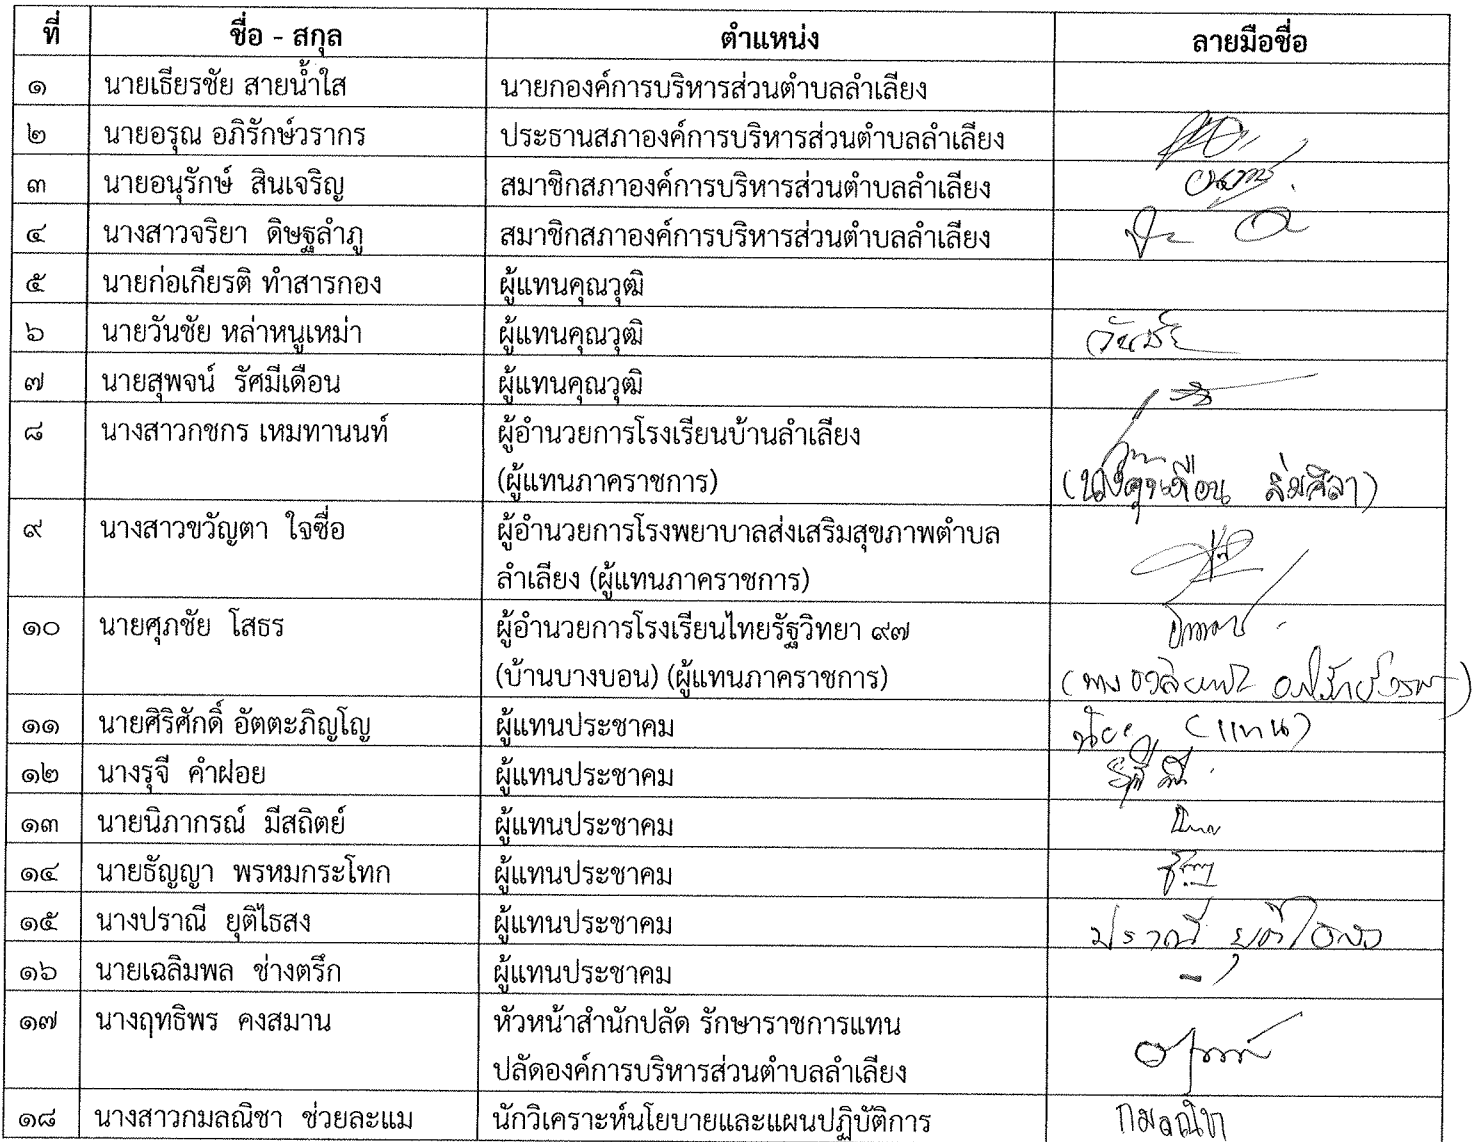 ที่ ชื่อ - สกุล ตำแหน่ง ลายมือชื่อ
๑ นายเธียรชัย สายน้ำใส นายกองค์การบริหารส่วนตำบลลำเลียง
๒ นายอรุณ อภิรักษ์วรากร ประธานสภาองค์การบริหารส่วนตำบลลำเลียง
๓ นายอนุรักษ์ สินเจริญ สมาชิกสภาองค์การบริหารส่วนตำบลลำเลียง
๔ นางสาวจริยา ดิษฐลำภู สมาชิกสภาองค์การบริหารส่วนตำบลลำเลียง
๕ นายก่อเกียรติ ทำสารกอง ผู้แทนคุณวุฒิ
๖ นายวันชัย หล่าหนูเหม่า ผู้แทนคุณวุฒิ วันชัย
๗ นายสุพจน์ รัศมีเดือน ผู้แทนคุณวุฒิ
๘ นางสาวกชกร เหมทานนท์ ผู้อำนวยการโรงเรียนบ้านลำเลียง
(ผู้แทนภาคราชการ)
๙ นางสาวขวัญตา ใจซื่อ ผู้อำนวยการโรงพยาบาลส่งเสริมสุขภาพตำบล
ลำเลียง (ผู้แทนภาคราชการ)
๑๐ นายศุภชัย โสธร ผู้อำนวยการโรงเรียนไทยรัฐวิทยา ๙๗
(บ้านบางบอน) (ผู้แทนภาคราชการ)
๑๑ นายศิริศักดิ์ อัตตะภิญโญ ผู้แทนประชาคม (แทน)
๑๒ นางรุจี คำฝอย ผู้แทนประชาคม
๑๓ นายนิภากรณ์ มีสถิตย์ ผู้แทนประชาคม
๑๔ นายธัญญา พรหมกระโทก ผู้แทนประชาคม
๑๕ นางปราณี ยุติไธสง ผู้แทนประชาคม ปราณี ยุติไธสง
๑๖ นายเฉลิมพล ช่างตรึก ผู้แทนประชาคม
๑๗ นางฤทธิพร คงสมาน หัวหน้าสำนักปลัด รักษาราชการแทน
ปลัดองค์การบริหารส่วนตำบลลำเลียง
๑๘ นางสาวกมลณิชา ช่วยละแม นักวิเคราะห์นโยบายและแผนปฏิบัติการ กมลณิชา